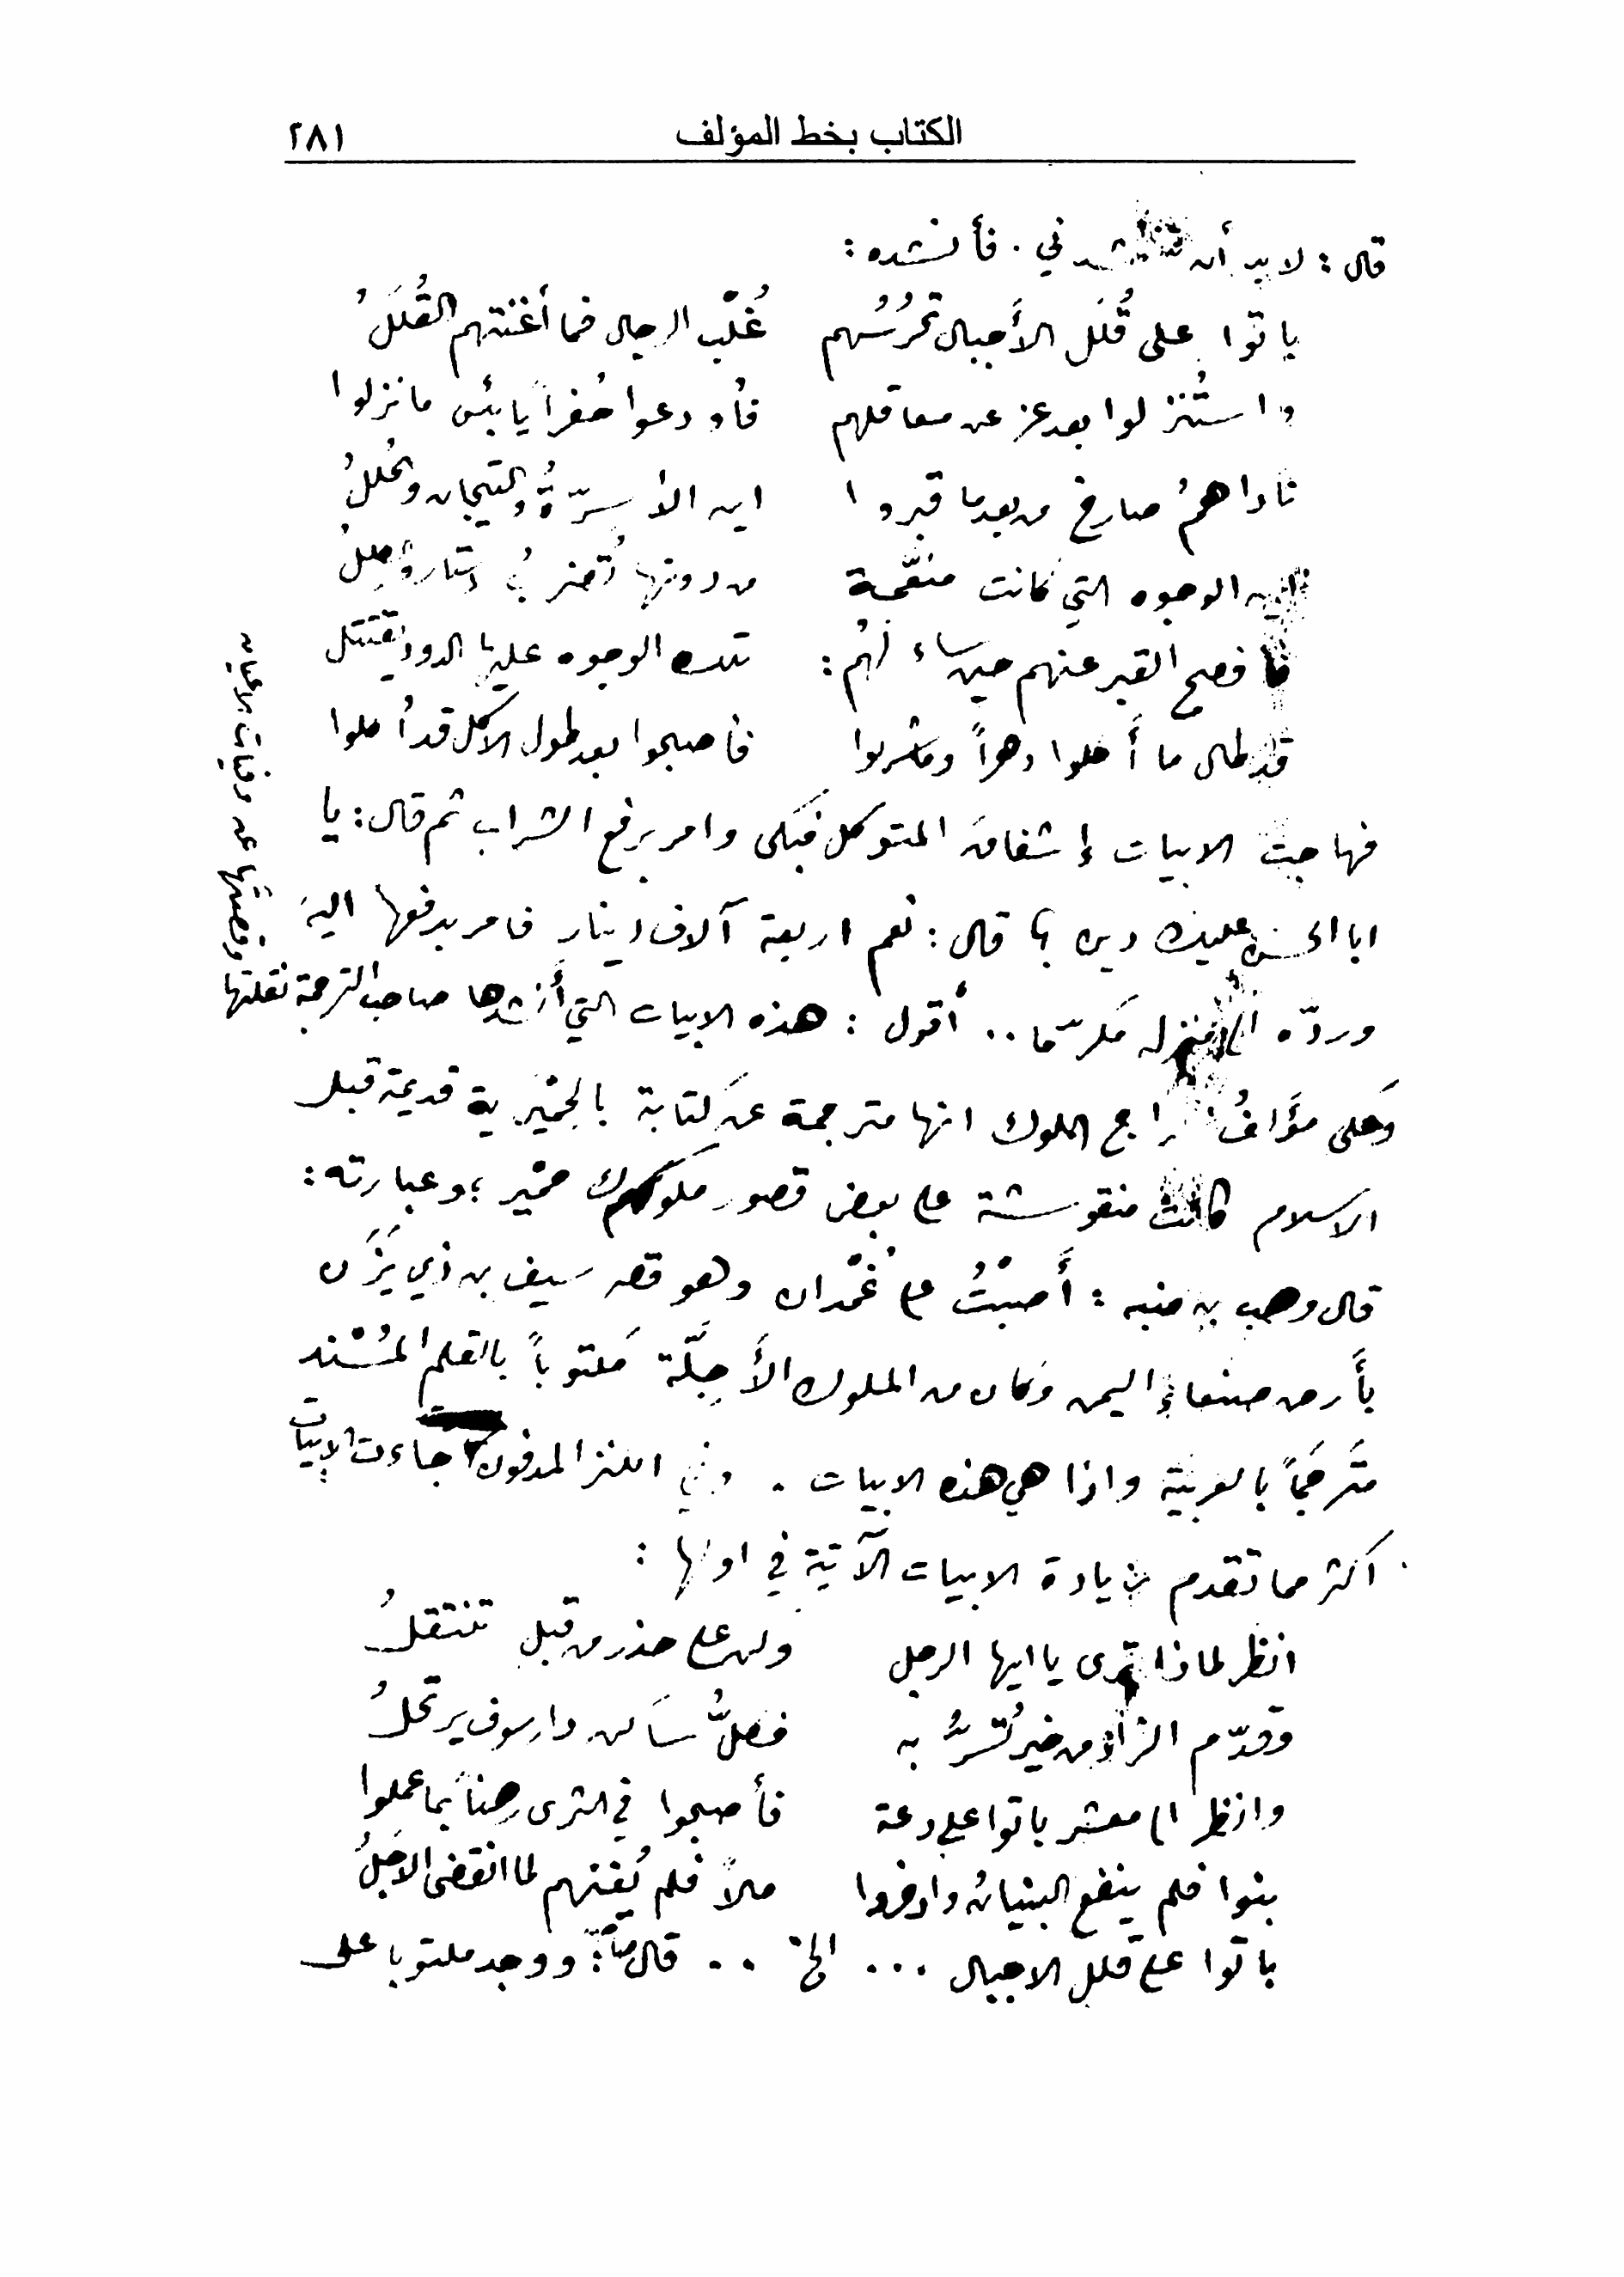 الكتاب بخط المؤلف ٢٨١
قال: لا بد أن تنشدني. فأنشده:
باتوا على قُلَل الأَجبال تحرُسُهم غُلْبُ الرجال فما أغنتهم القُلَلُ
واستُنزلوا بعد عز عن معاقلهم فأُودعوا حُفراً يا بئس ما نزلوا
ناداهمُ صارخ من بعد ما قبروا اين الأسرّةُ والتيجان والحُللُ
اين الوجوه التي كانت منعّمة من دونها تُضرب الاستار والكللُ
فأفصح القبر عنهم حين ساءلهم: تلك الوجوه عليها الدود يقتتل
قد طال ما أكلوا دهراً وما شربوا فأصبحوا بعد طول الأكل قد أُكلوا
فهاجت الابيات إشفاق المتوكل فبكى وامر برفع الشراب ثم قال: يا
ابا الحسن عليك دين؟ قال: نعم اربعة آلاف دينار فامر بدفعها اليه
وردّه الى منزله مكرّما.. أقول: هذه الابيات التي أنشدها صاحب الترجمة نقلتها
وقصتها عن وفيات الاعيان
وحكى مؤلف سراج الملوك انها مترجمة عن كتابة بالحِمْيَرية قديمة قبل
الاسلام كانت منقوشة على بعض قصور ملوك حمْير؛ وعبارته:
قال وهب بن منبه: أَصبْتُ على غُمْدان وهو قصر سيف بن ذي يَزَن
بأَرض صنعاء اليمن وكان من الملوك الأَجِلّة مكتوباً بالقلم المُسْند
مترجَماً بالعربية واذا هي هذه الابيات. وفي الكنز المدفون جاءت الابيات
اكثر مما تقدم بزيادة الابيات الآتية في اولها:
انظر لماذا ترى يا ايها الرجل وكن على حذر من قبل تنتقلُ
وقدّم الزاد من خير تُسَرُّ به فكلُّ ساكن دار سوف يرتحلُ
وانظر الى معشر باتوا على دعة فأصبحوا في الثرى رهناً بما عملوا
بنوا فلم ينفع البنيان وادخروا مالاً فلم يُغنهم لما انقضى الأجلُ
باتوا على قلل الاجبال ... الخ .. قال: ووجد مكتوبا على